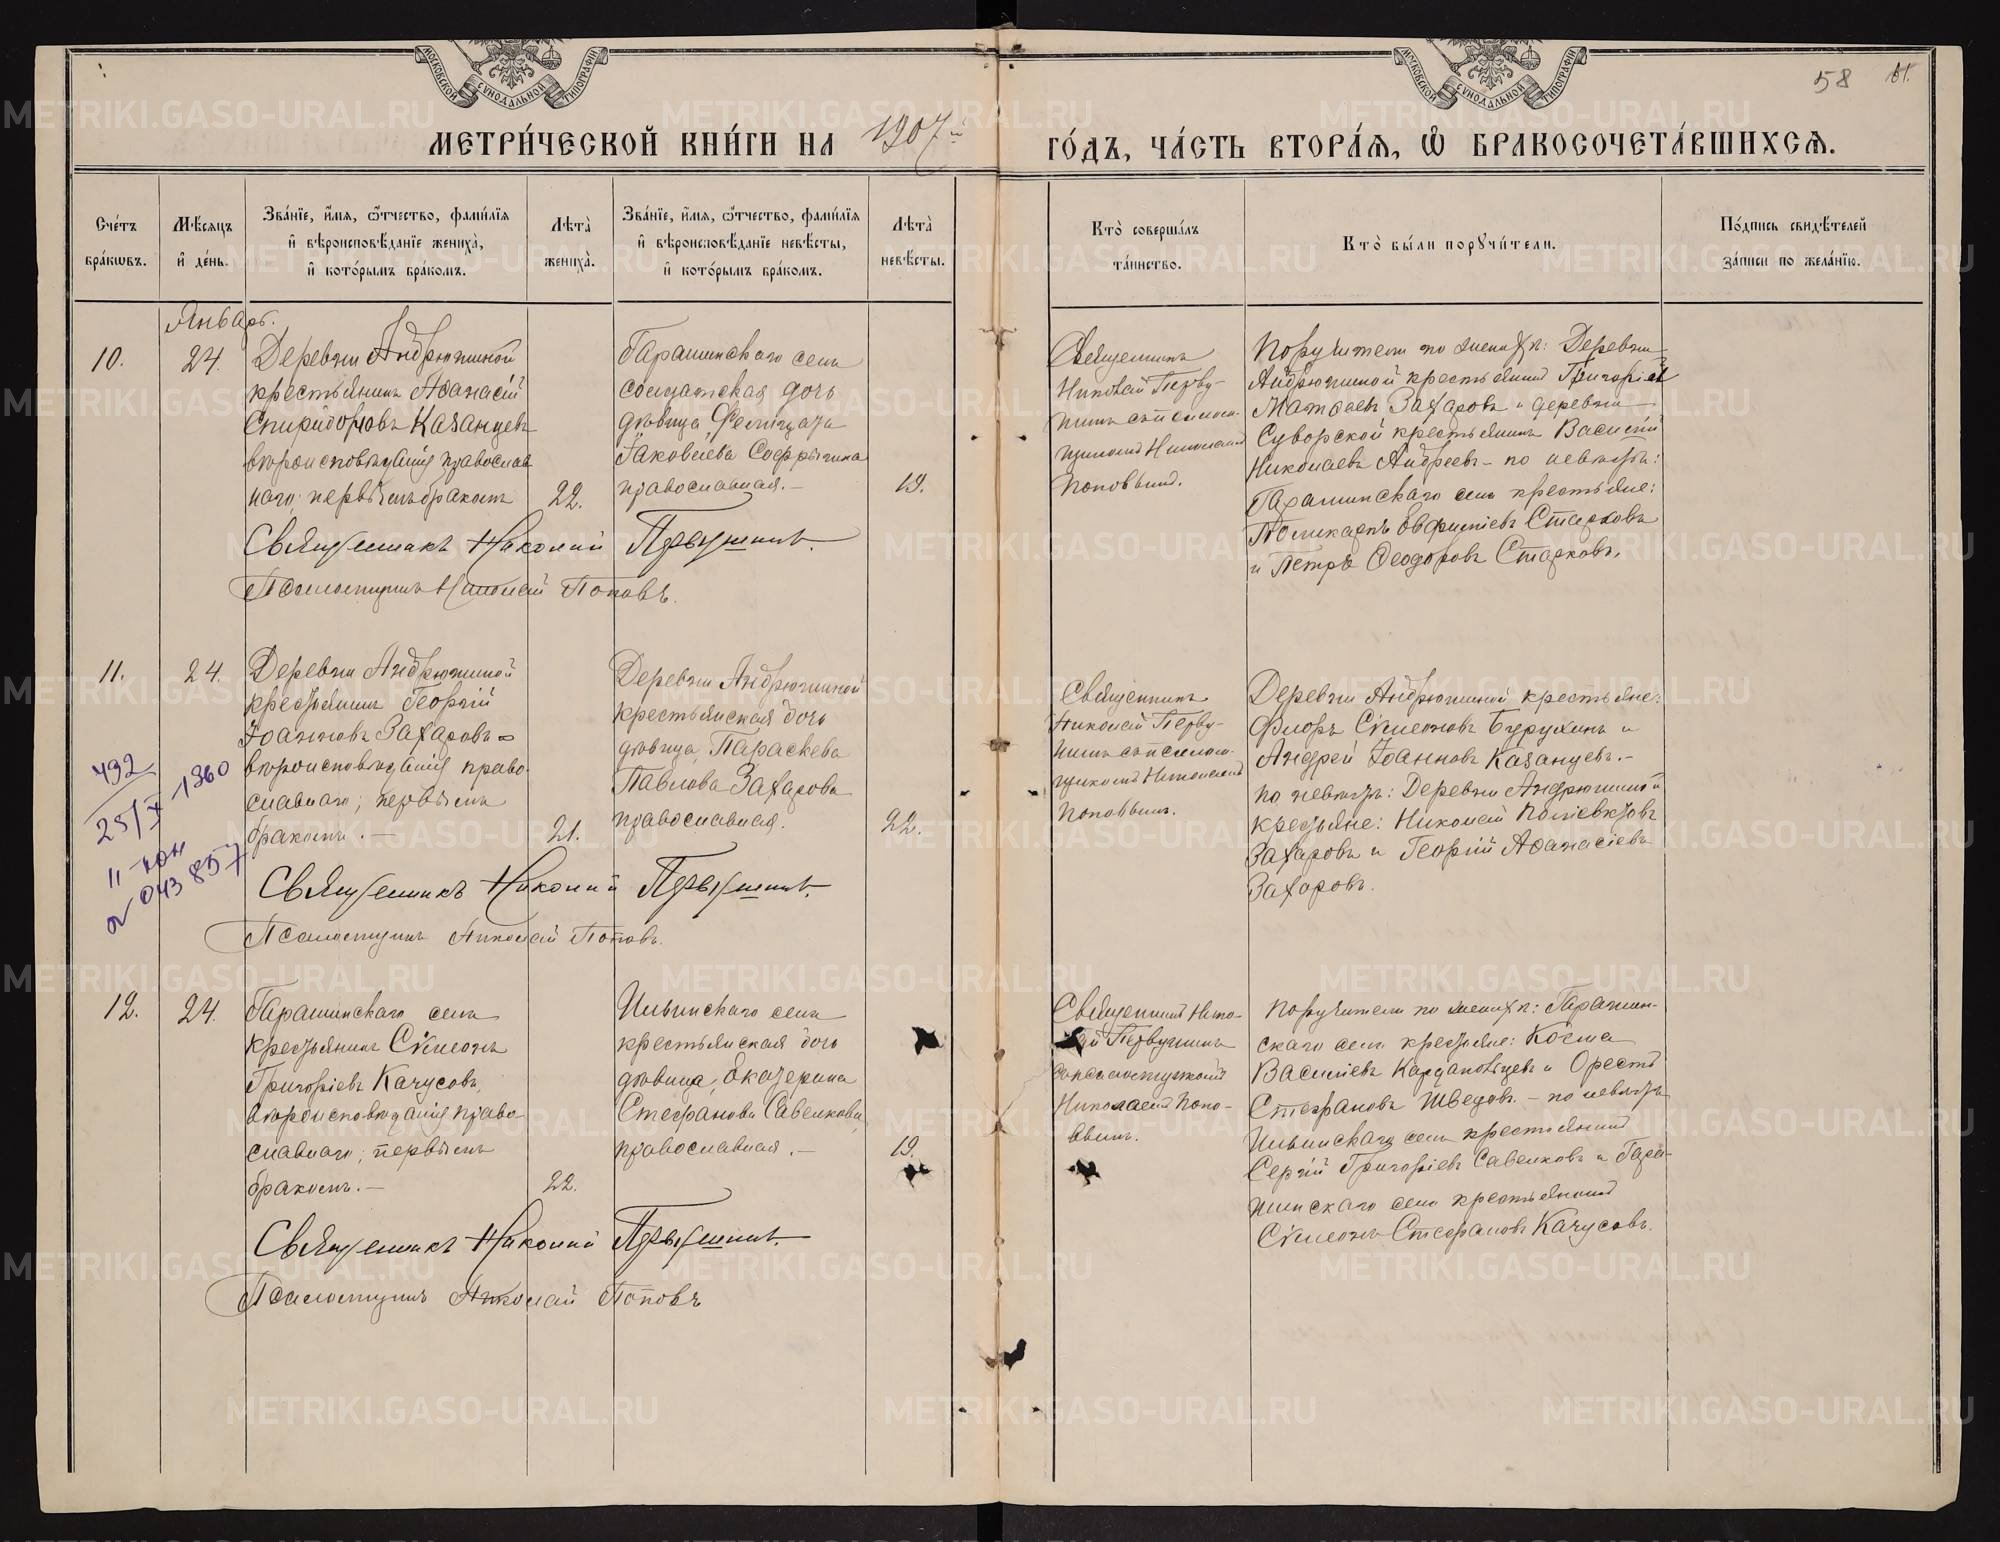 МОСКОВСКОЙ СѴНОДАЛЬНОЙ ТИПОГРАФІИ
МОСКОВСКОЙ СѴНОДАЛЬНОЙ ТИПОГРАФІИ
58
МЕТРИ́ЧЕСКОЙ КНИ́ГИ НА 1907й ГО́ДЪ, ЧА́СТЬ ВТОРА́Я, Ѡ БРАКОСОЧЕТА́ВШИХСЯ.
Сче́тъ бра́кѡвъ.
Мѣ́сяцъ и҆ де́нь.
Зва́нїе, и҆́мя, ѻ҆́тчество, фами́лїя и҆ вѣроисповѣ́данїе жениха̀, и҆ кото́рымъ бра́комъ.
Лѣта̀ жениха̀.
Зва́нїе, и҆́мя, ѻ҆́тчество, фами́лїя и҆ вѣроисповѣ́данїе невѣ́сты, и҆ кото́рымъ бра́комъ.
Лѣта̀ невѣ́сты.
Кто̀ соверша́лъ та́инство.
Кто̀ бы́ли порꙋчи́тели.
По́дпись свидѣ́телей за́писи по жела́нїю.
Январь.
10.
24.
Деревни Андрюшиной
крестьянинъ Аѳанасій
Спиридоновъ Казанцевъ
вѣроисповѣданія православ
наго; первымъ бракомъ
22.
Гарашинскаго села
солдатская дочь
дѣвица Фелицата
Іаковлева
православная.–
19.
Священникъ
Николай Перву-
шинъ съ псалом-
щикомъ Николаемъ
Поповымъ.
Поручители по женихѣ: Деревни
Андрюшиной крестьянинъ Григорій
Матѳеевъ Захаровъ и деревни
Суворской крестьянинъ Василій
Николаевъ Андреевъ – по невѣстѣ:
Гарашинскаго села крестьяне:
Поликарпъ Евфиміевъ Старковъ
и Петръ Ѳеодоровъ Старковъ.
Священникъ Николай Первушинъ.
Псаломщикъ Николай Поповъ.
11.
24.
Деревни Андрюшиной
крестьянинъ Георгій
Іоанновъ Захаровъ
вѣроисповѣданія право-
славнаго; первымъ
бракомъ.–
21.
Деревни Андрюшиной
крестьянская дочь
дѣвица Параскева
Павлова Захарова
православная.
22.
Священникъ
Николай Перву-
шинъ съ псалом-
щикомъ Николаемъ
Поповымъ.
Деревни Андрюшиной крестьяне:
Флоръ Сѵмеоновъ Бурухинъ и
Андрей Іоанновъ Казанцевъ.–
по невѣстѣ: Деревни Андрюшиной
крестьяне: Николай Поліевктовъ
Захаровъ и Георгій Аѳанасіевъ
Захаровъ.
492
25/X -1960
043857
Священникъ Николай Первушинъ.
Псаломщикъ Николай Поповъ.
12.
24.
Гарашинскаго села
крестьянинъ Сѵмеонъ
Григоріевъ Качусовъ,
вѣроисповѣданія право-
славнаго; первымъ
бракомъ.–
22.
Ильинскаго села
крестьянская дочь
дѣвица, Екатерина
Стефанова Савелкова,
православная.–
19.
Священникъ Нико-
лай Первушинъ
съ псаломщикомъ
Николаемъ Попо-
вымъ.
Поручители по женихѣ: Гарашин-
скаго села крестьяне: Косма
Василіевъ и Орестъ
Стефановъ Шведовъ.– по невѣстѣ
Ильинскаго села крестьянинъ
Сергій Григоріевъ Савелковъ и Гара-
шинскаго села крестьянинъ
Сѵмеонъ Стефановъ Качусовъ.
Священникъ Николай Первушинъ.
Псаломщикъ Николай Поповъ
METRIKI.GASO-URAL.RU